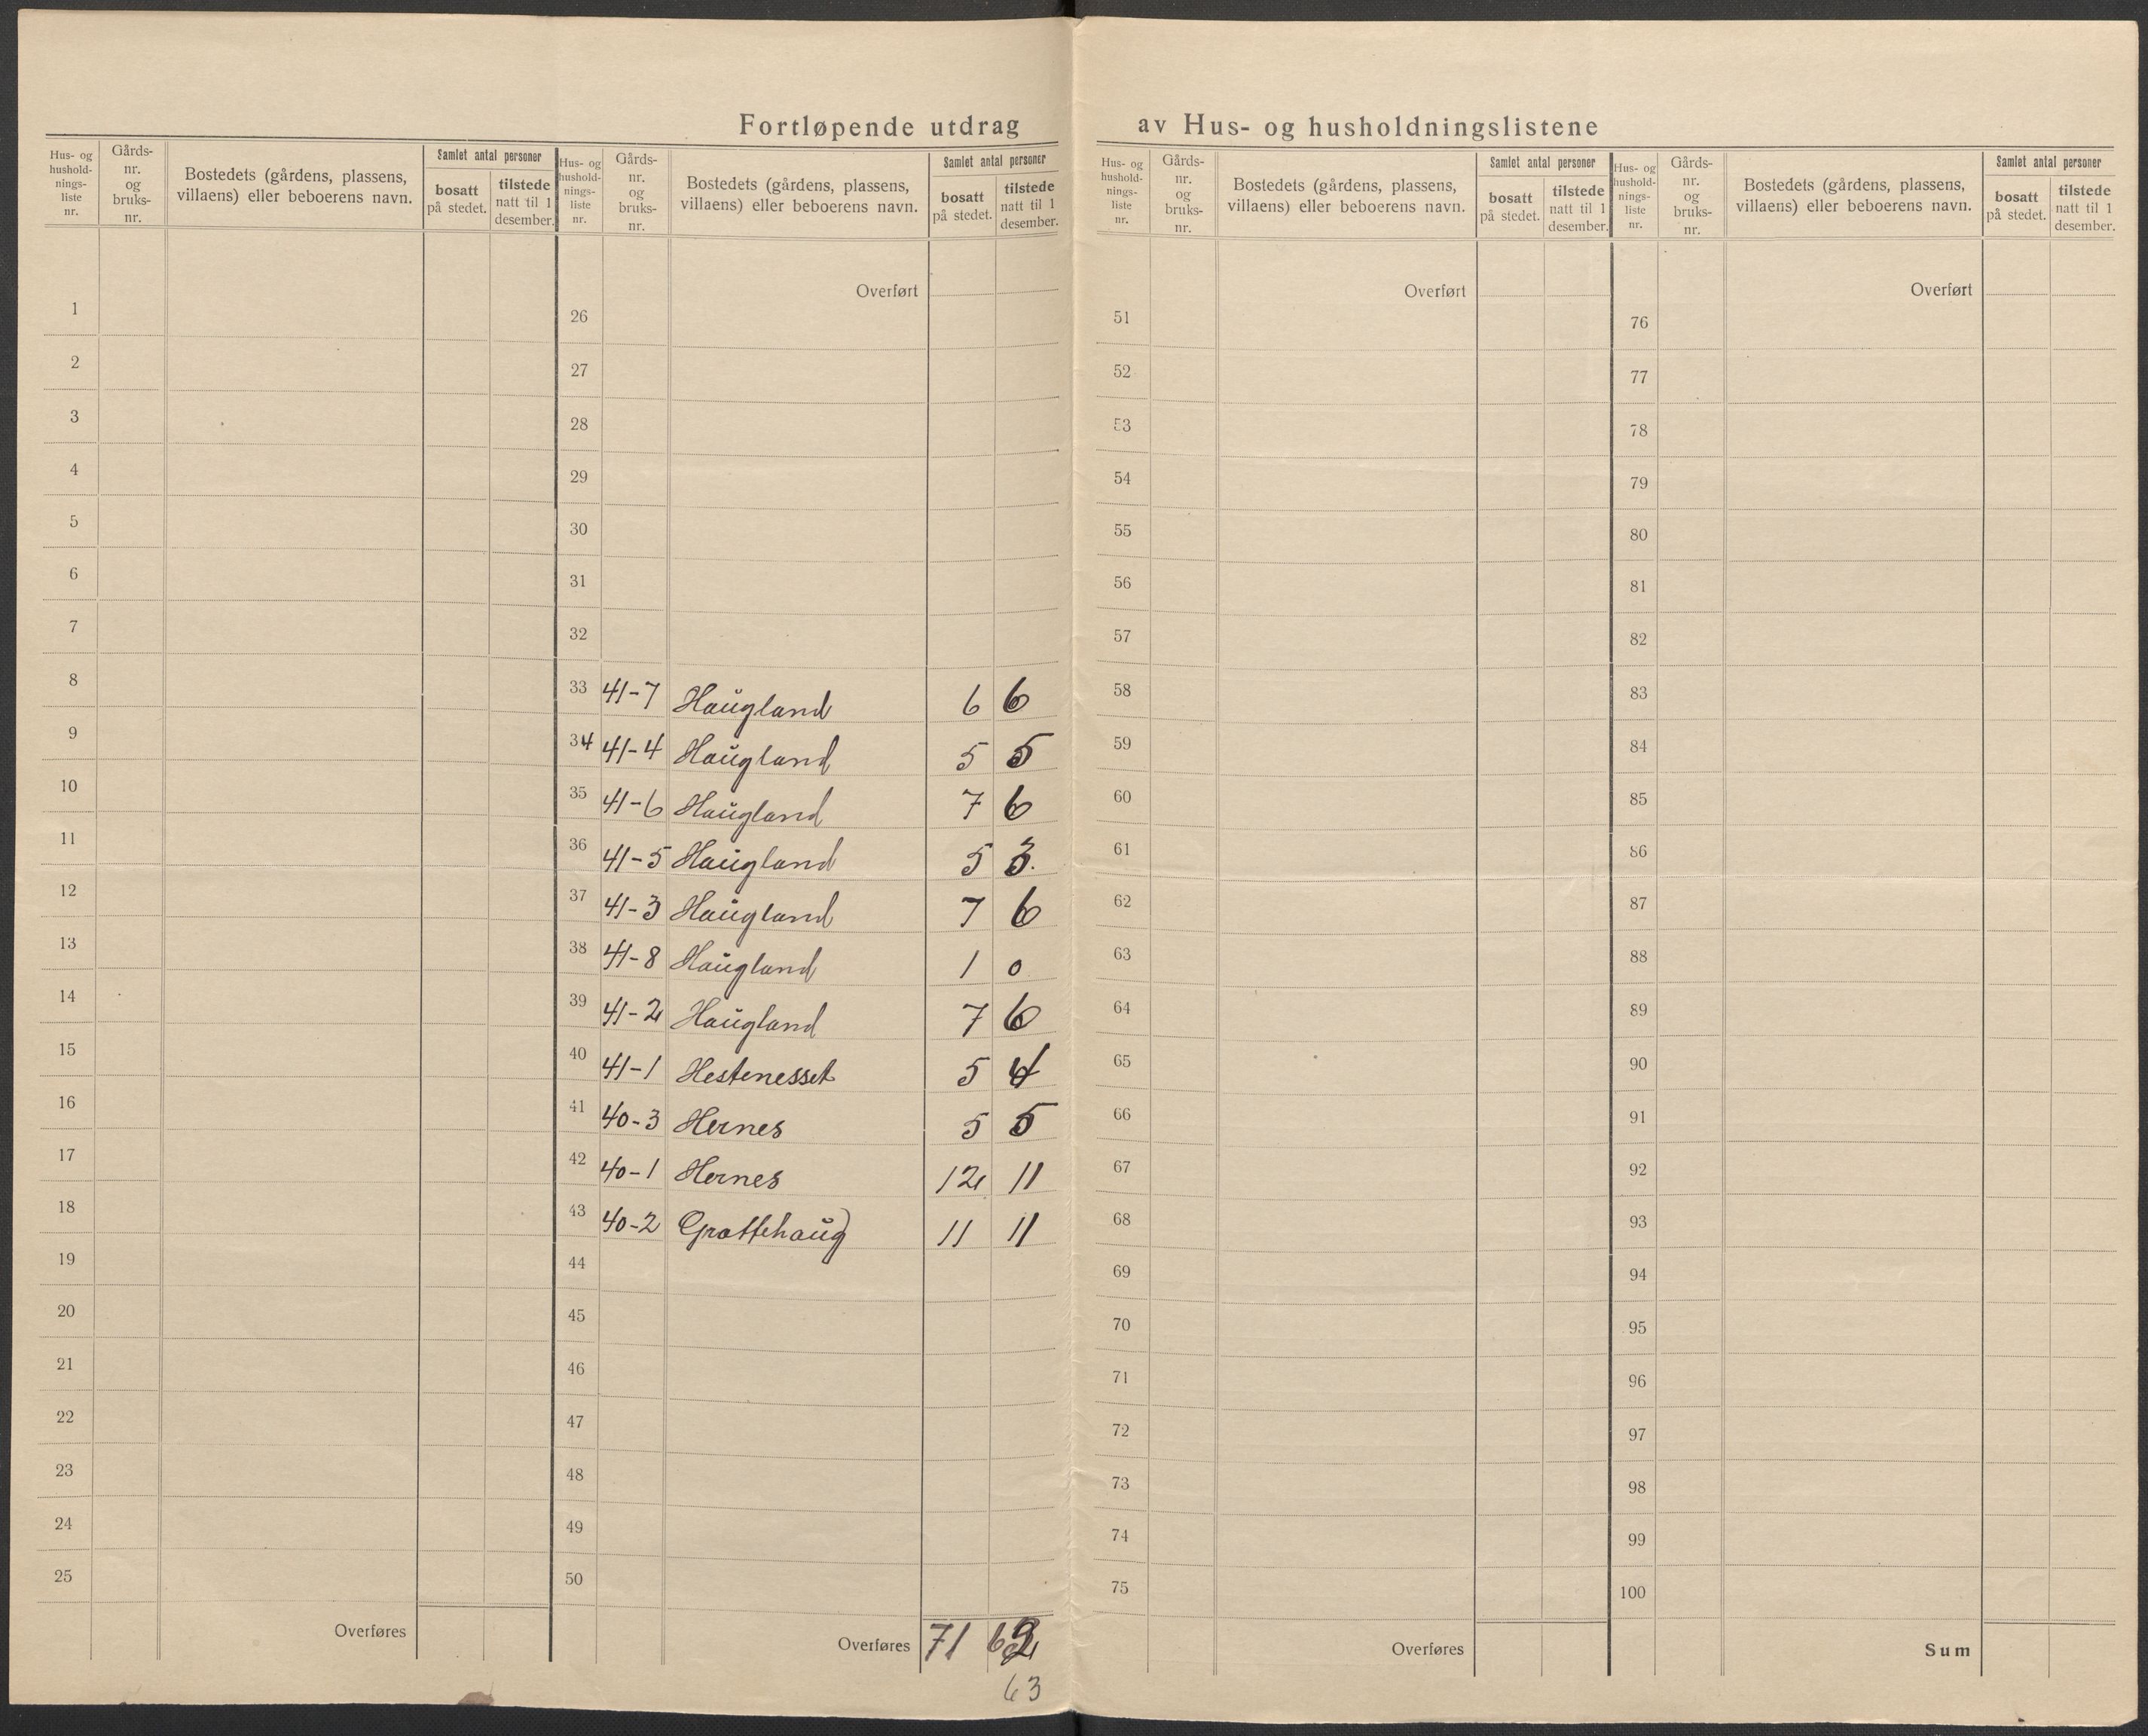 Fortløpende utdrag av Hus- og husholdningslistene
Hus- og hushold-nings-liste nr. Gårds-nr. og bruks-nr. Bostedets (gårdens, plassens, villaens) eller beboerens navn. Samlet antal personer bosatt på stedet. tilstede natt til 1 desember.
1
2
3
4
5
6
7
8
9
10
11
12
13
14
15
16
17
18
19
20
21
22
23
24
25
Overføres
Hus- og hushold-nings-liste nr. Gårds-nr. og bruks-nr. Bostedets (gårdens, plassens, villaens) eller beboerens navn. Samlet antal personer bosatt på stedet. tilstede natt til 1 desember.
Overført
26
27
28
29
30
31
32
33 41-7 Haugland 6 6
34 41-4 Haugland 5 5
35 41-6 Haugland 7 6
36 41-5 Haugland 5 3.
37 41-3 Haugland 7 6
38 41-8 Haugland 1 0
39 41-2 Haugland 7 6
40 41-1 Hestenesset 5 4
41 40-3 Hernes 5 5
42 40-1 Hernes 12 11
43 40-2 Grottehaug 11 11
44
45
46
47
48
49
50
Overføres 71
63
Hus- og hushold-nings-liste nr. Gårds-nr. og bruks-nr. Bostedets (gårdens, plassens, villaens) eller beboerens navn. Samlet antal personer bosatt på stedet. tilstede natt til 1 desember.
Overført
51
52
53
54
55
56
57
58
59
60
61
62
63
64
65
66
67
68
69
70
71
72
73
74
75
Overføres
Hus- og hushold-nings-liste nr. Gårds-nr. og bruks-nr. Bostedets (gårdens, plassens, villaens) eller beboerens navn. Samlet antal personer bosatt på stedet. tilstede natt til 1 desember.
Overført
76
77
78
79
80
81
82
83
84
85
86
87
88
89
90
91
92
93
94
95
96
97
98
99
100
Sum